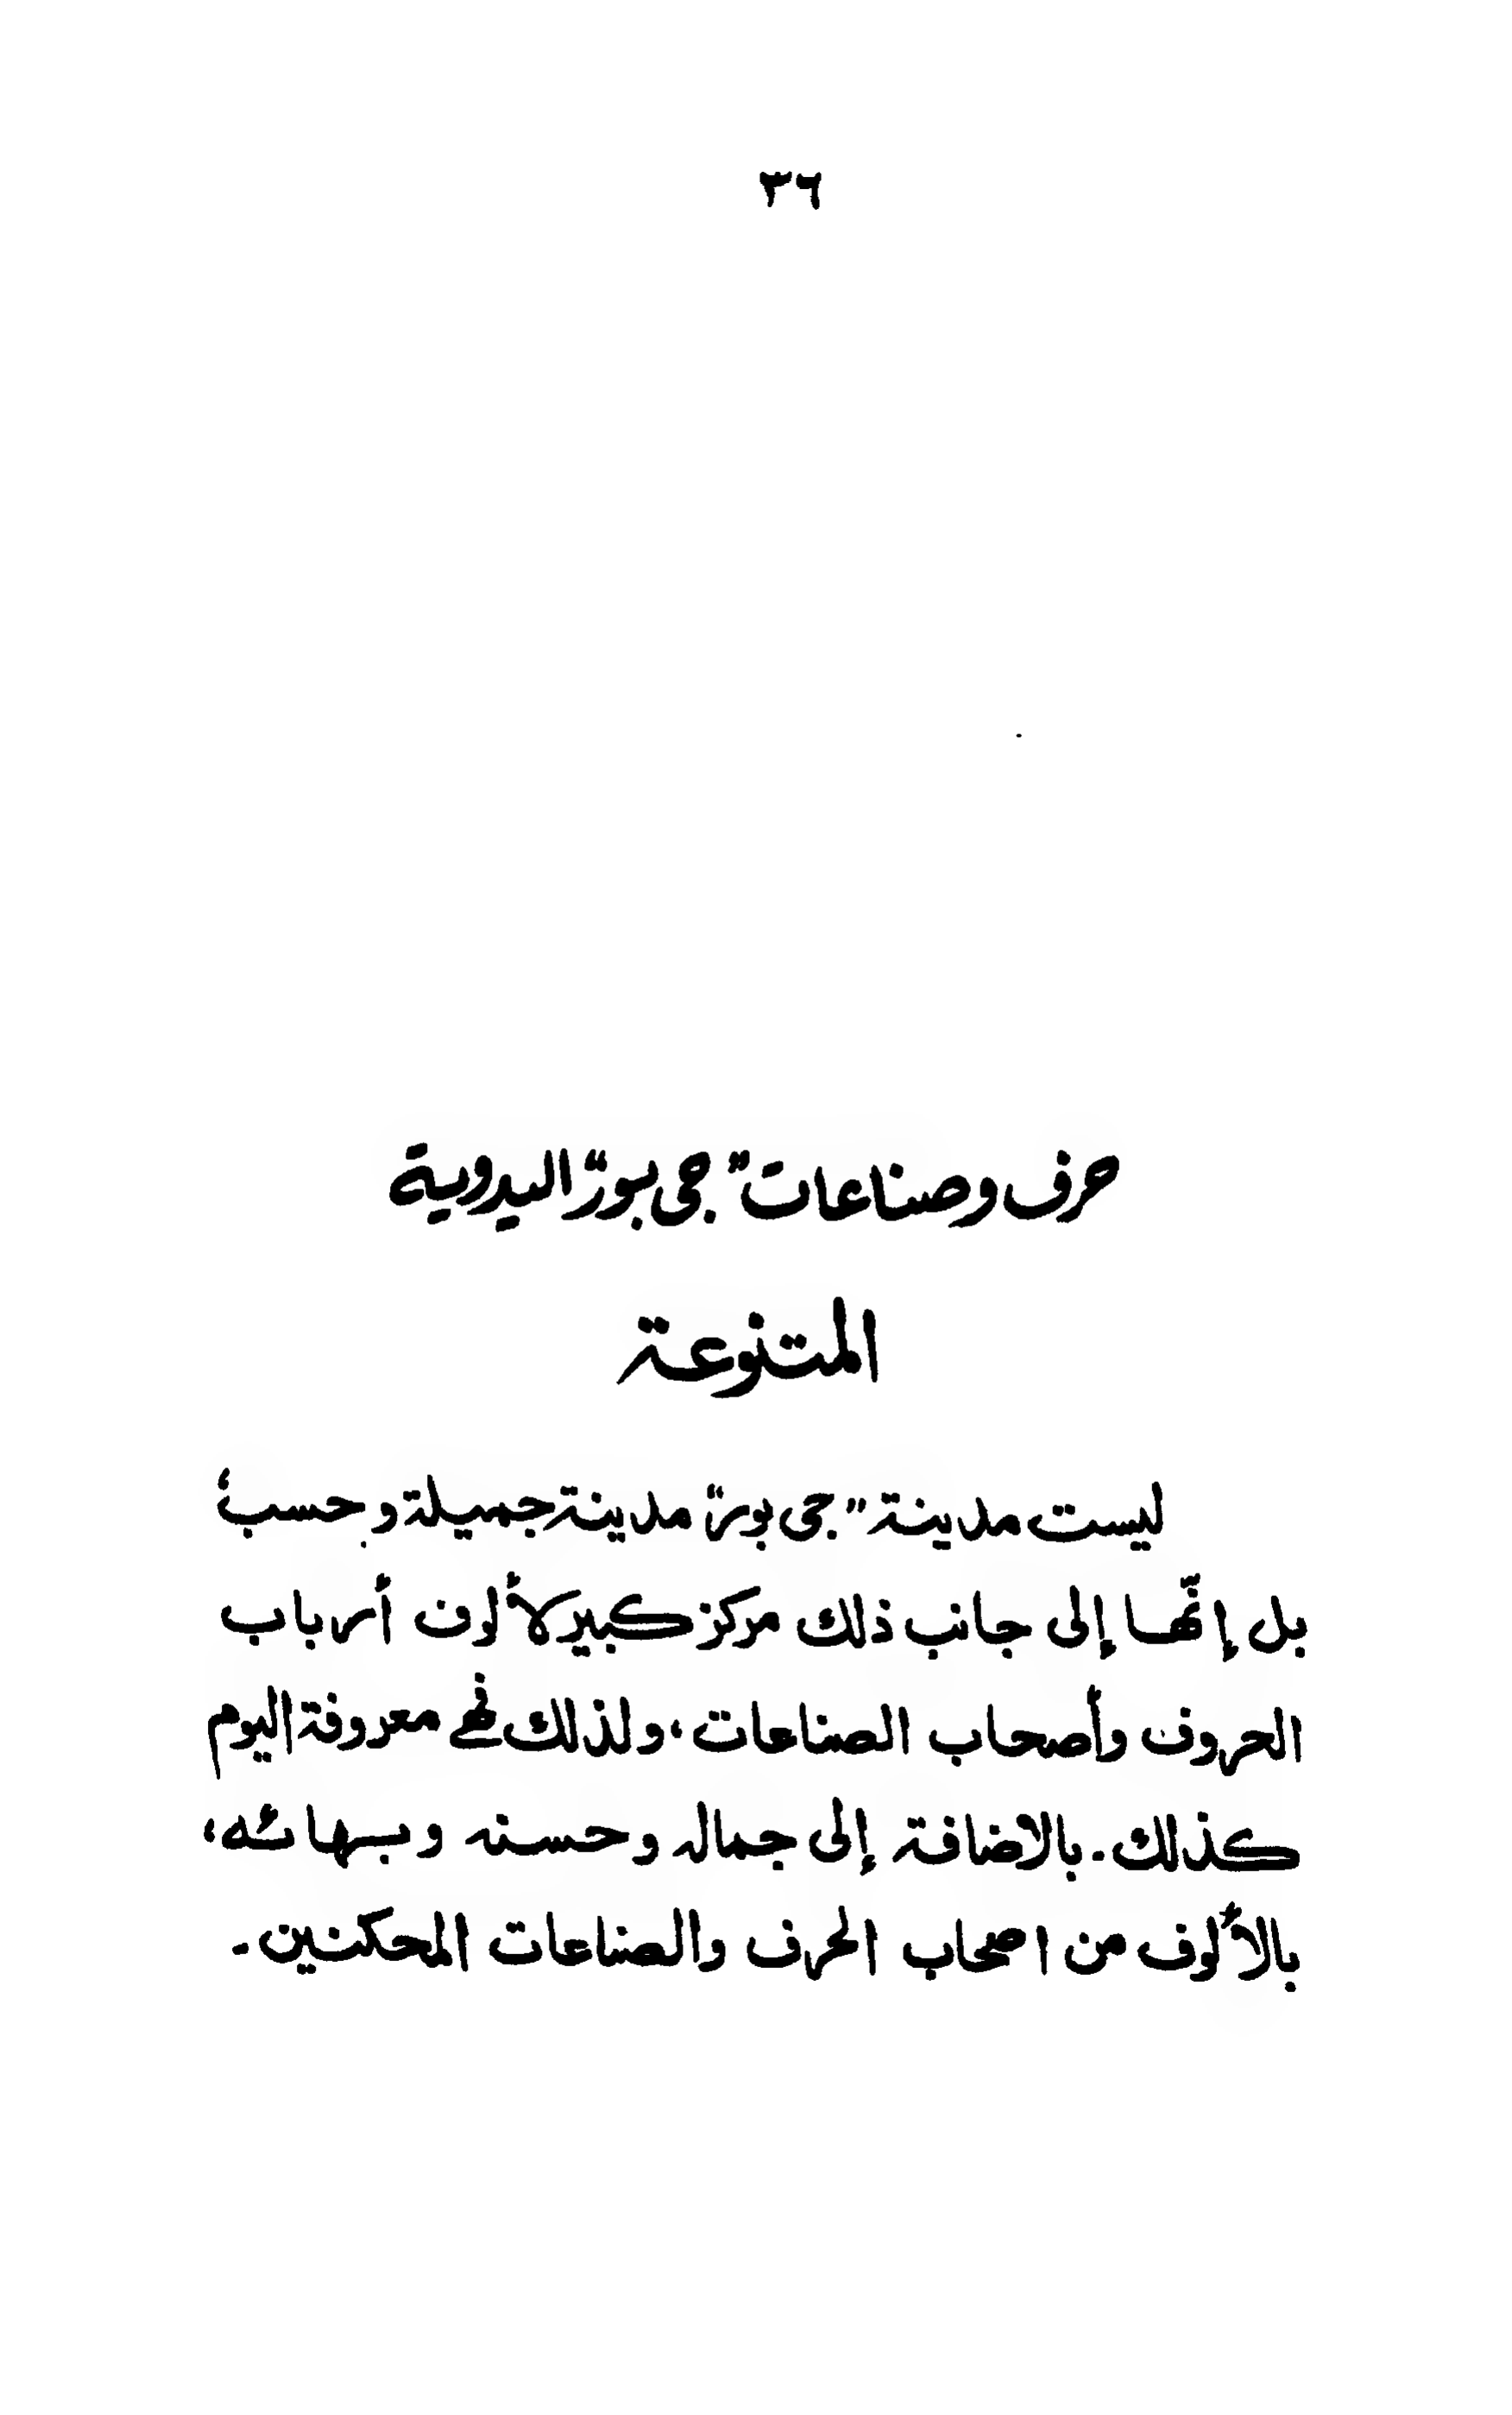 ٣٦
حرف وصناعات "جى بور" اليدوية
المتنوعة
ليست مدينة "جى بور" مدينة جميلة وحسب؛
بل إنّها إلى جانب ذلك مركز كبير لألوف أرباب
الحروف وأصحاب الصناعات، ولذلك فهى معروفة اليوم
كذلك. بالاضافة إلى جماله وحسنه وبهائه،
بالألوف من اصحاب الحرف والصناعات المحكنين.